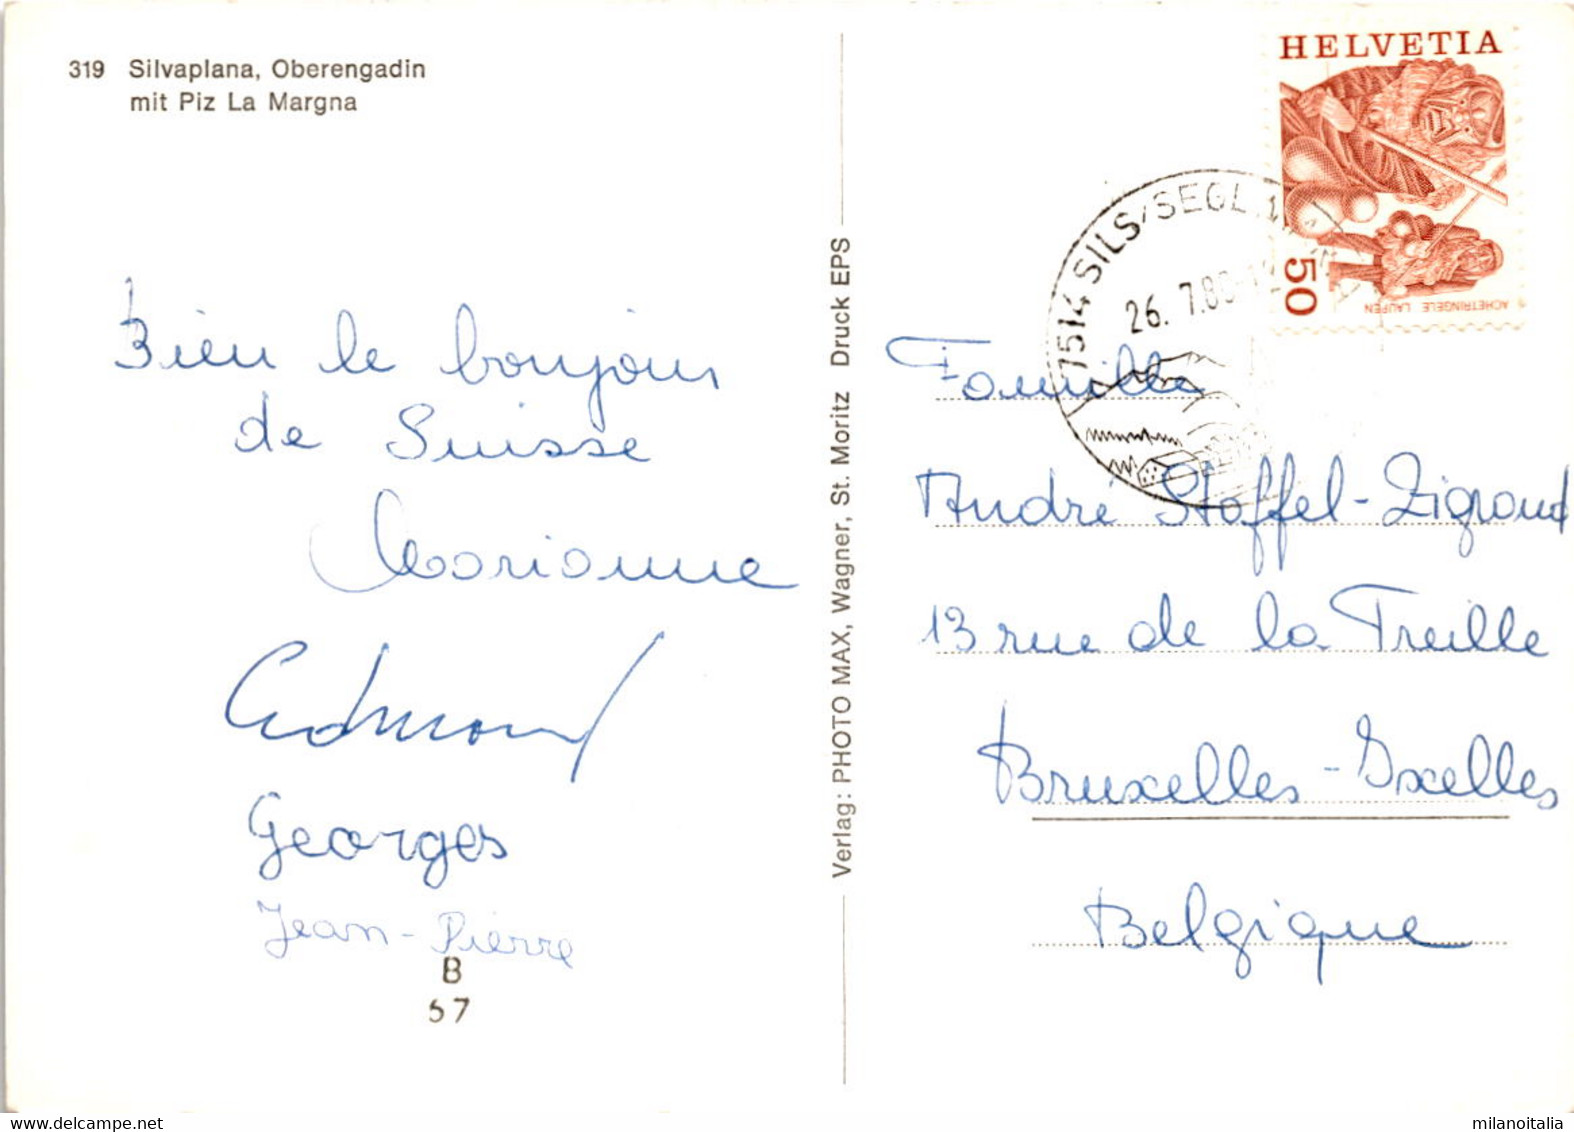 319 Silvaplana, Oberengadin
mit Piz La Margna
Bien le bonjour
de Suisse
Marianne
Edmond
Georges
Jean-Pierre
B
57
Verlag: PHOTO MAX, Wagner, St. Moritz Druck EPS
HELVETIA
50
ACHETRINGELE LAUPEN
7514 SILS/SEGL
26. 7.80
Famille
André Stoffel-Zigrand
13 rue de la Treille
Bruxelles-Ixelles
Belgique
milanoitalia